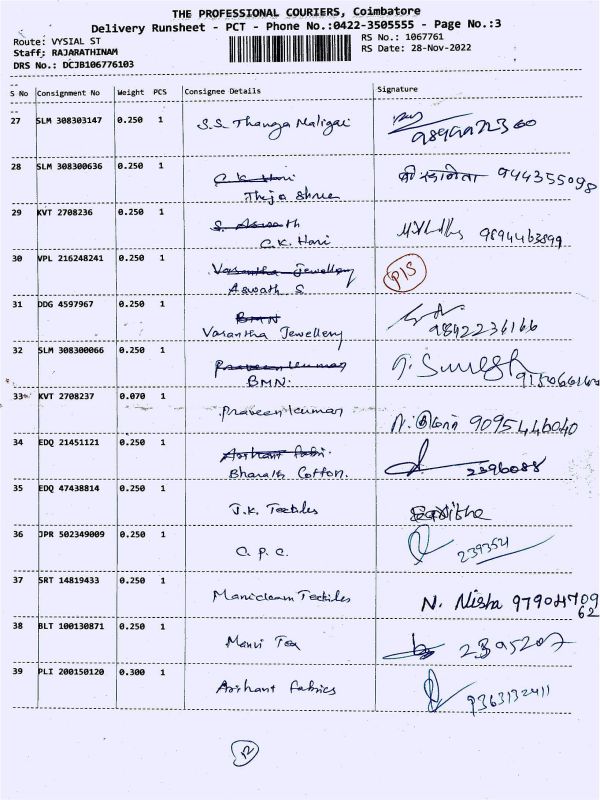 THE PROFESSIONAL COURIERS, Coimbatore
Delivery Runsheet - PCT - Phone No.:0422-3505555 - Page No.:3
Route: VYSIAL ST
RS No.: 1067761
Staff: RAJARATHINAM
RS Date: 28-Nov-2022
DRS No.: DCJB106776103
S No Consignment No Weight PCS Consignee Details Signature
27 SLM 308303147 0.250 1 S.S. Thanga Maligai
28 SLM 308300636 0.250 1 C.K. Hari
Theja Shree 944355098
29 KVT 2708236 0.250 1 S. Aswath
C.K. Hari 9894463899
30 VPL 216248241 0.250 1 Vasantha Jewellery P1S
Aswath S
31 DDG 4597967 0.250 1 BMN
Vasantha Jewellery 9842236166
32 SLM 308300066 0.250 1 Praveen kumar
BMN.
33 KVT 2708237 0.070 1 Praveen kumar 9095446040
34 EDQ 21451121 0.250 1 Arihant Fabri.
Bharath Cotton. 2396088
35 EDQ 47438814 0.250 1 J.K. Textiles
36 JPR 502349009 0.250 1 C.P.C. 239354
37 SRT 14819433 0.250 1 Manickam Textiles N. Nisha 979084709
62
38 BLT 100130871 0.250 1 Manvi Tex 2395207
39 PLI 200150120 0.300 1 Arihant Fabrics 9363132411
12